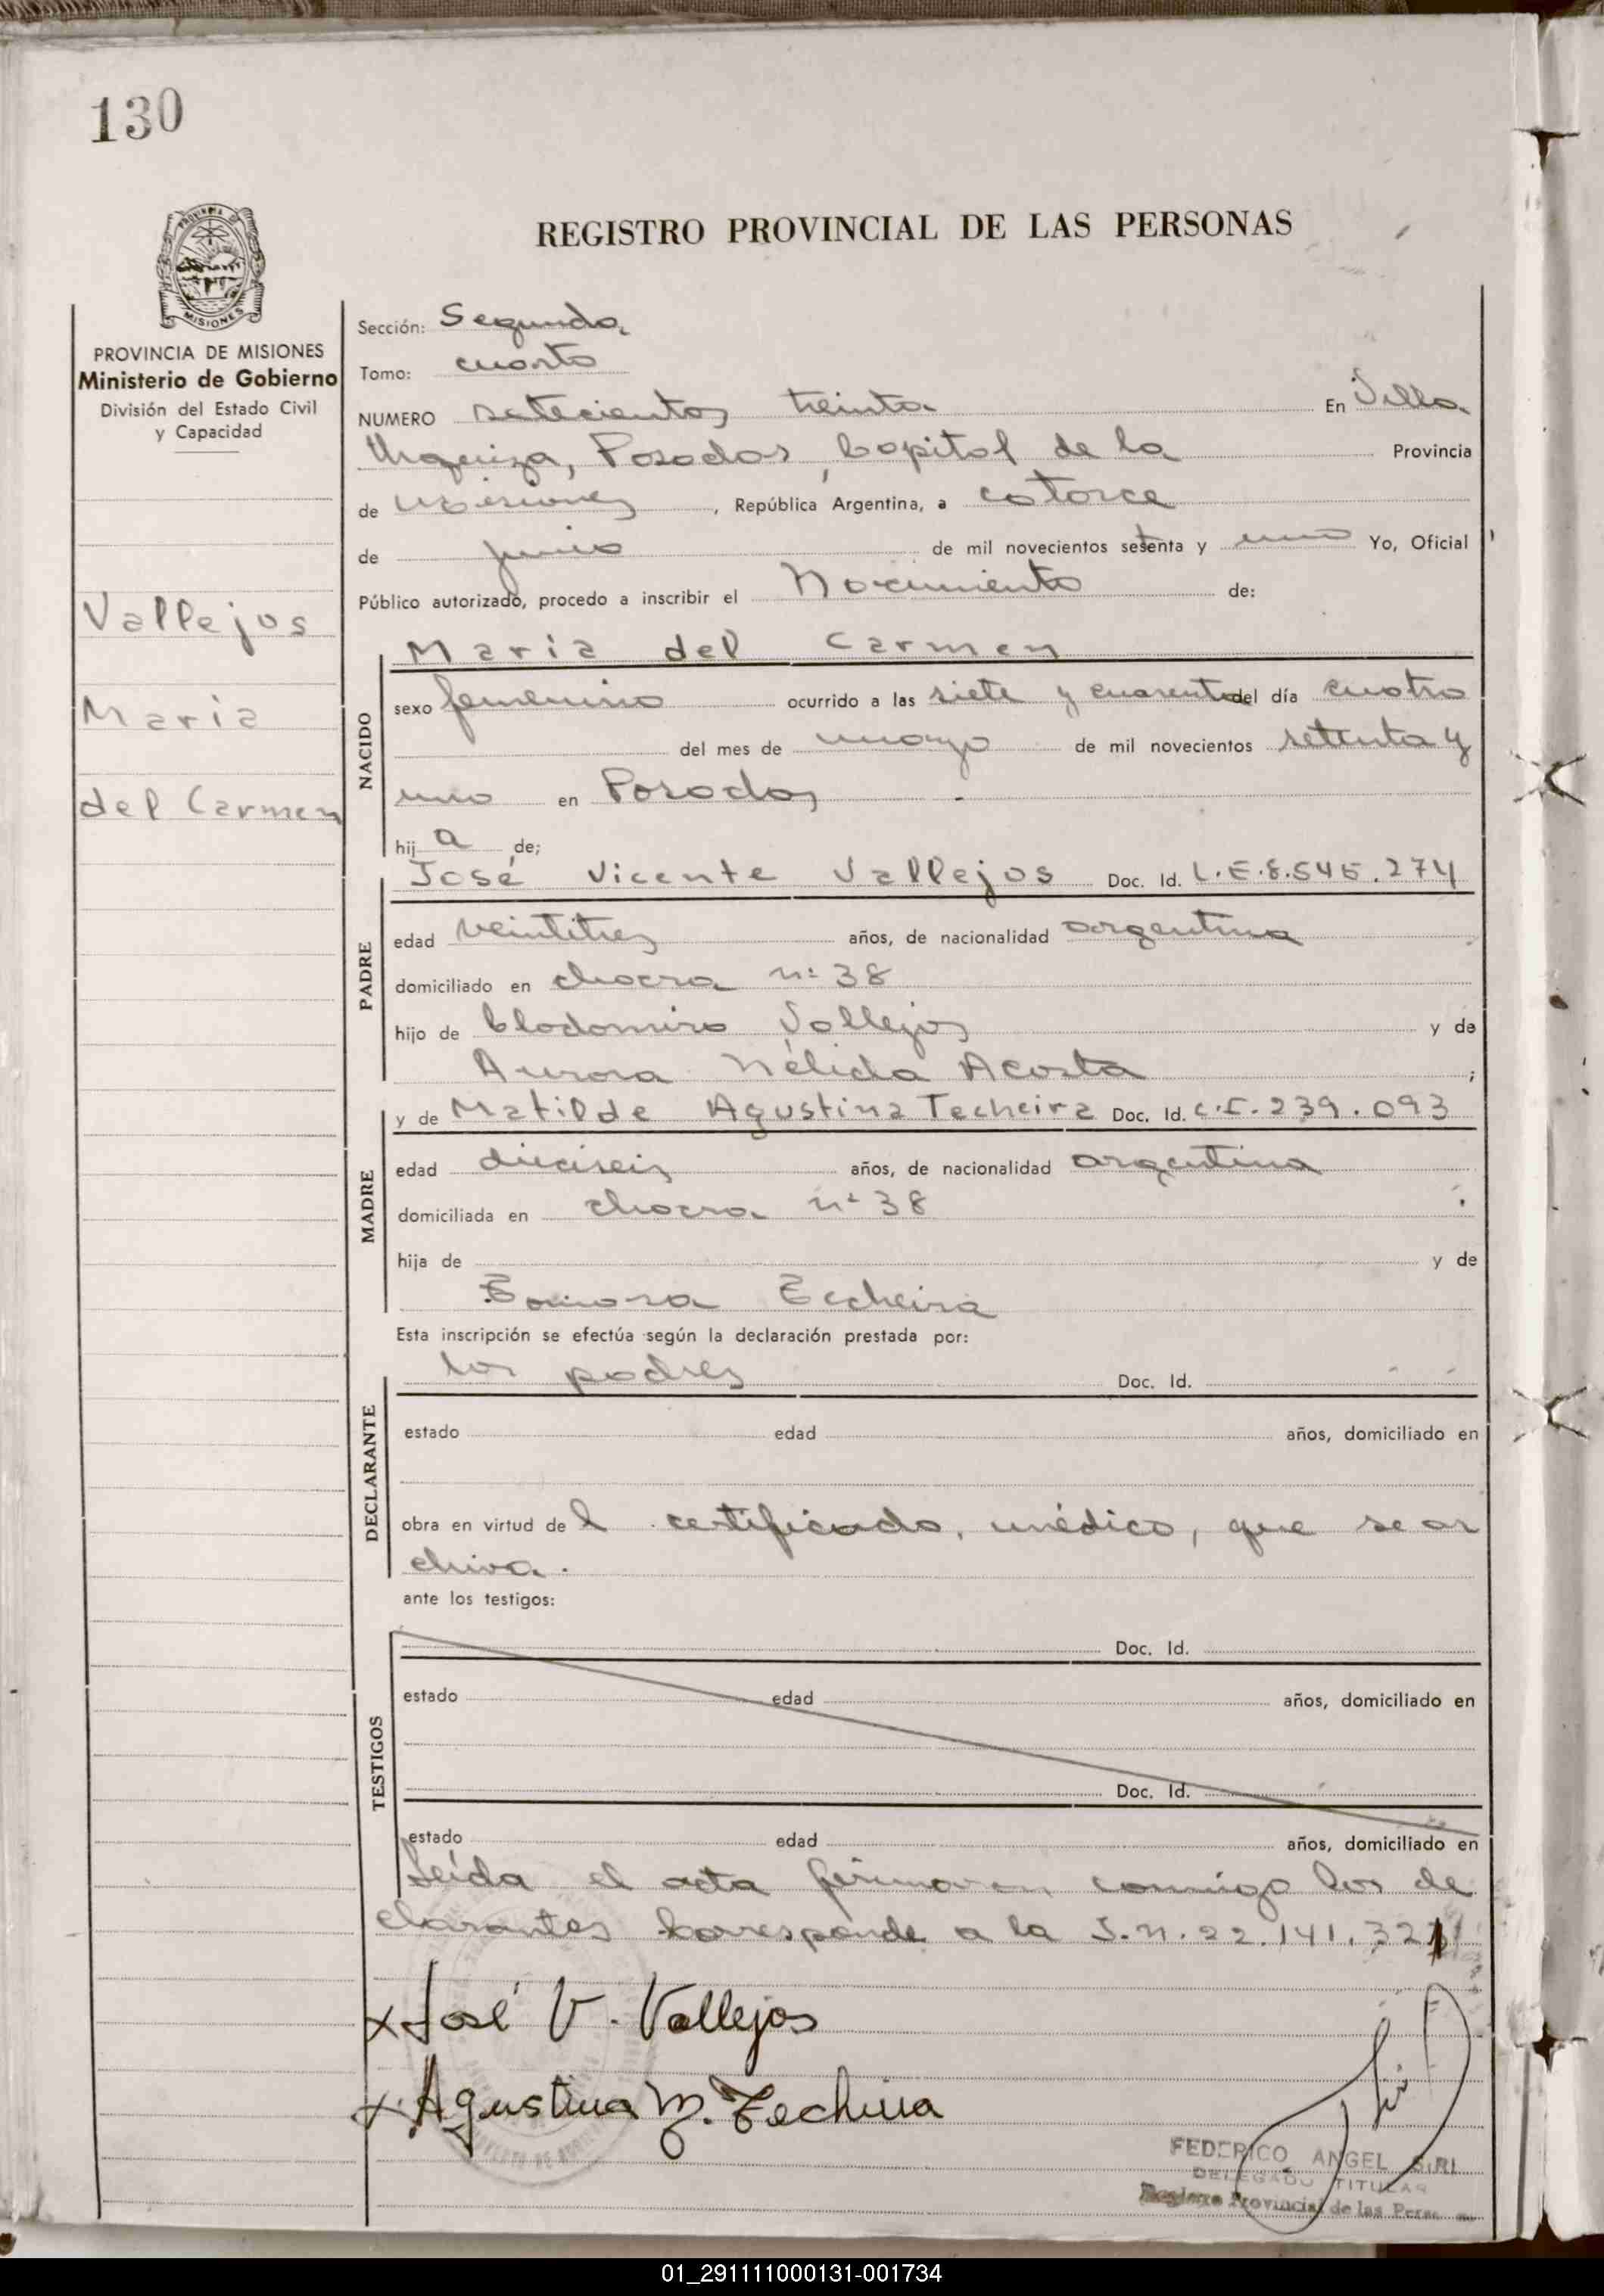 130
REGISTRO PROVINCIAL DE LAS PERSONAS
MISIONES
PROVINCIA DE MISIONES
Ministerio de Gobierno
División del Estado Civil
y Capacidad
Vallejos
Maria
del Carmen
Sección: Segunda
Tomo: cuarto
NUMERO setecientos treinta En Villa
Urquiza, Posadas, Capital de la Provincia
de Misiones, República Argentina, a catorce
de junio de mil novecientos setenta y uno Yo, Oficial
Público autorizado, procedo a inscribir el Nacimiento de:
Maria del Carmen
NACIDO
sexo femenino ocurrido a las siete y cuarenta del día cuatro
del mes de mayo de mil novecientos setenta y
uno en Posadas
hij a de;
José Vicente Vallejos Doc. Id. L.E.8.545.274
PADRE
edad veintitres años, de nacionalidad argentina
domiciliado en chacra nº 38
hijo de Clodomiro Vallejos y de
Aurora Nélida Acosta ;
y de Matilde Agustina Techeira Doc. Id. C.I. 239.093
MADRE
edad dieciseis años, de nacionalidad argentina
domiciliada en chacra nº 38
hija de y de
Techeira
Esta inscripción se efectúa según la declaración prestada por:
los padres Doc. Id.
DECLARANTE
estado edad años, domiciliado en
obra en virtud de l certificado, médico, que se ar
chiva.
ante los testigos:
TESTIGOS
Doc. Id.
estado edad años, domiciliado en
Doc. Id.
estado edad años, domiciliado en
Leída el acta firmaron conmigo los de
clarantes Corresponde a la I.N. 22.141.321
x José V. Vallejos
x Agustina M. Techeira
FEDERICO ANGEL SIRI
DELEGADO TITULAR
Registro Provincial de las Pers
01_291111000131-001734